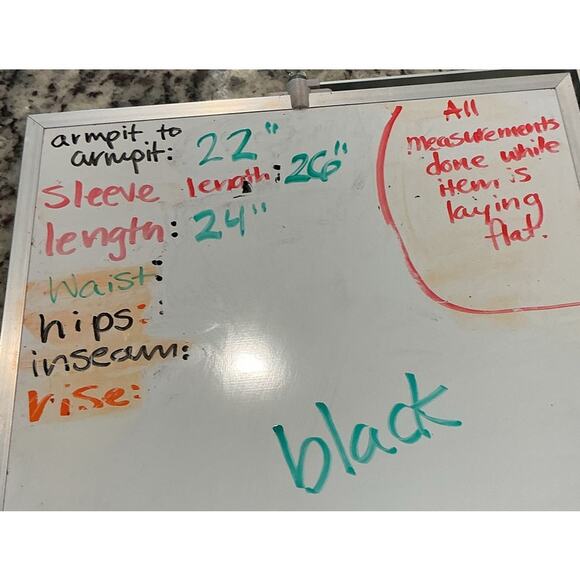 armpit to
armpit: 22"
Sleeve length: 26"
length: 24"
Waist:
hips:
inseam:
rise:
All
measurements
done while
item is
laying
flat.
black